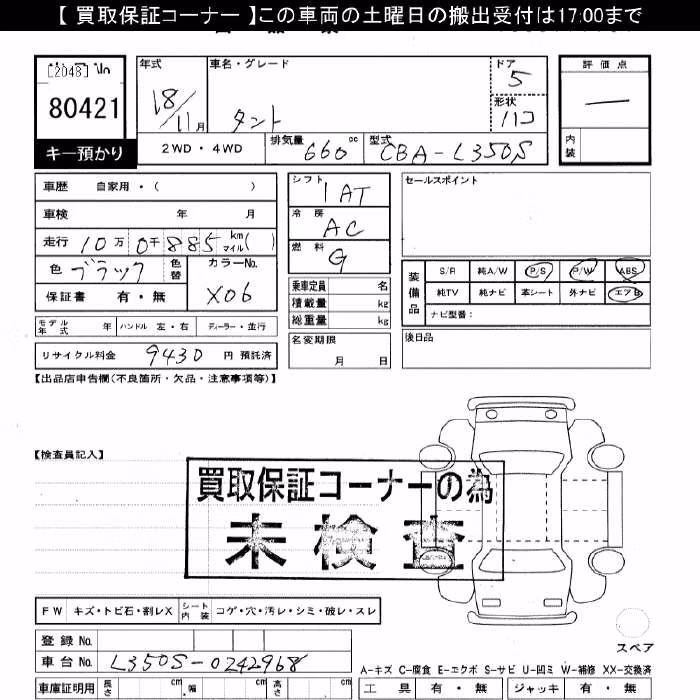 【 買取保証コーナー 】この車両の土曜日の搬出受付は17:00まで
[2048]
80421
キー預かり
年式
18/11月
車名・グレード
タント
ドア
5
形状
ハコ
2WD・4WD
排気量 660 cc
型式 CBA-L350S
評価点
—
内装
車歴 自家用・( )
車検 年 月
走行 10万0千885 km マイル( )
色 ブラック 色替
カラーNo.
X06
保証書 有・無
モデル年式 年 ハンドル 左・右 ディーラー・並行
リサイクル料金 9430 円 預託済
シフト 1AT
冷房 AC
燃料 G
乗車定員 名
積載量 kg
総重量 kg
名変期限
月 日
セールスポイント
装備品
S/R 純A/W P/S P/W ABS
純TV 純ナビ 革シート 外ナビ エアB
ナビ型番：
後日品
【出品店申告欄(不良箇所・欠品・注意事項等)】
【検査員記入】
買取保証コーナーの為
未検査
FW キズ・トビ石・割レX シート内装 コゲ・穴・汚レ・シミ・破レ・スレ
登録 No.
車台 No. L350S-0242968
車庫証明用 長さ cm 幅 cm 高さ cm
スペア
A-キズ C-腐食 E-エクボ S-サビ U-凹ミ W-補修 XX-交換済
工具 有・無 ジャッキ 有・無